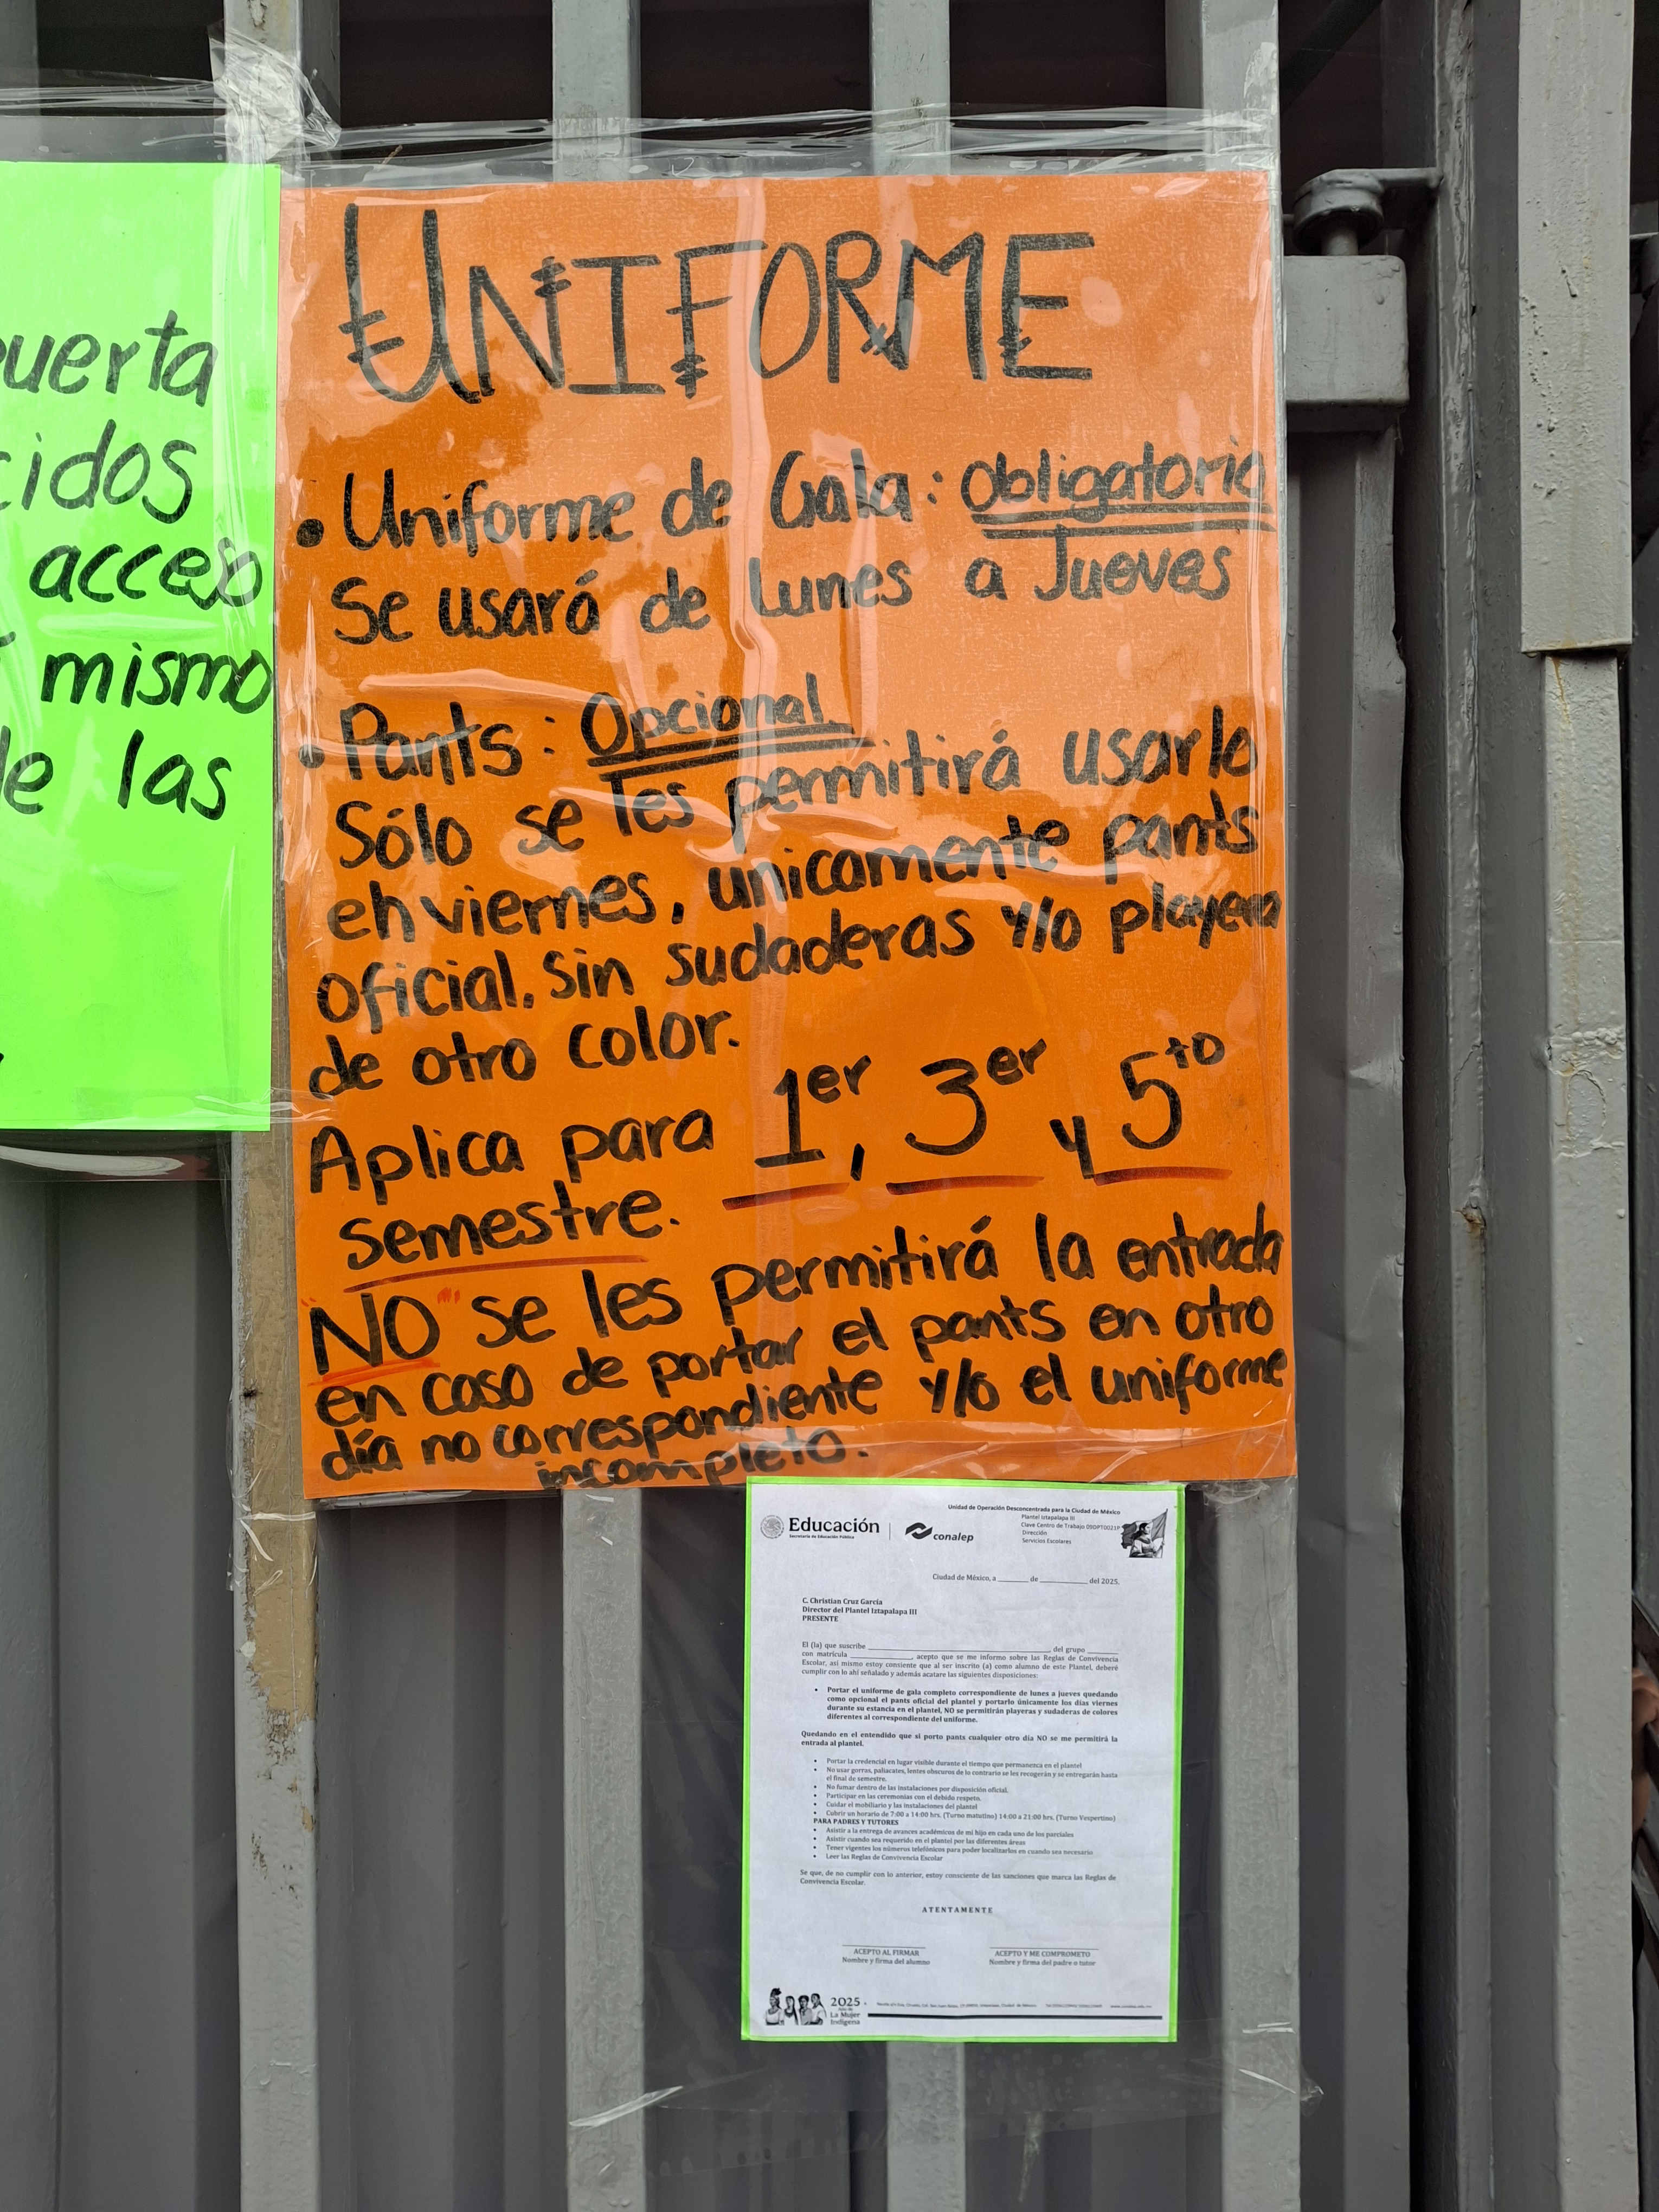 uerta
cidos
acceso
mismo
le las
UNIFORME
• Uniforme de Gala: Obligatorio
Se usará de Lunes a Jueves
• Pants: Opcional
Sólo se les permitirá usarlo
en viernes, unicamente pants
oficial. Sin sudaderas y/o playera
de otro color.
Aplica para 1er, 3er y 5to
semestre.
NO se les permitirá la entrada
en caso de portar el pants en otro
día no correspondiente y/o el uniforme
incompleto.
Unidad de Operación Desconcentrada para la Ciudad de México
Plantel Iztapalapa III
Clave Centro de Trabajo 09DPT0021P
Dirección
Servicios Escolares
Educación
Secretaría de Educación Pública
conalep
Ciudad de México, a ________ de ____________ del 2025.
C. Christian Cruz García
Director del Plantel Iztapalapa III
PRESENTE
El (la) que suscribe ____________________ del grupo ________
con matrícula ________________, acepto que se me informo sobre las Reglas de Convivencia
Escolar, así mismo estoy consiente que al ser inscrito (a) como alumno de este Plantel, deberé
cumplir con lo ahí señalado y además acatare las siguientes disposiciones:
• Portar el uniforme de gala completo correspondiente de lunes a jueves quedando
como opcional el pants oficial del plantel y portarlo únicamente los días viernes
durante su estancia en el plantel, NO se permitirán playeras y sudaderas de colores
diferentes al correspondiente del uniforme.
Quedando en el entendido que si porto pants cualquier otro día NO se me permitirá la
entrada al plantel.
• Portar la credencial en lugar visible durante el tiempo que permanezca en el plantel
• No usar gorras, paliacates, lentes obscuros de lo contrario se les recogerán y se entregarán hasta
el final de semestre.
• No fumar dentro de las instalaciones por disposición oficial.
• Participar en las ceremonias con el debido respeto.
• Cuidar el mobiliario y las instalaciones del plantel
• Cubrir un horario de 7:00 a 14:00 hrs. (Turno matutino) 14:00 a 21:00 hrs. (Turno Vespertino)
PARA PADRES Y TUTORES
• Asistir a la entrega de avances académicos de mi hijo en cada uno de los parciales
• Asistir cuando sea requerido en el plantel por las diferentes áreas
• Tener vigentes los números telefónicos para poder localizarlos en cuando sea necesario
• Leer las Reglas de Convivencia Escolar
Se que, de no cumplir con lo anterior, estoy consciente de las sanciones que marca las Reglas de
Convivencia Escolar.
ATENTAMENTE
ACEPTO AL FIRMAR
Nombre y firma del alumno
ACEPTO Y ME COMPROMETO
Nombre y firma del padre o tutor
2025
Año de
La Mujer
Indígena